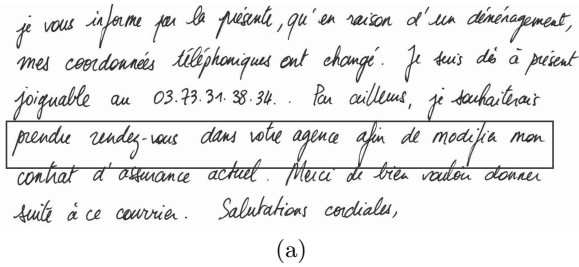 je vous informe par la présente, qu'en raison d'un déménagement,
mes coordonnées téléphoniques ont changé. Je suis dès à présent
joignable au 03.73.31.38.34.. Par ailleurs, je souhaiterais
prendre rendez-vous dans votre agence afin de modifier mon
contrat d'assurance actuel. Merci de bien vouloir donner
suite à ce courrier. Salutations cordiales,
(a)